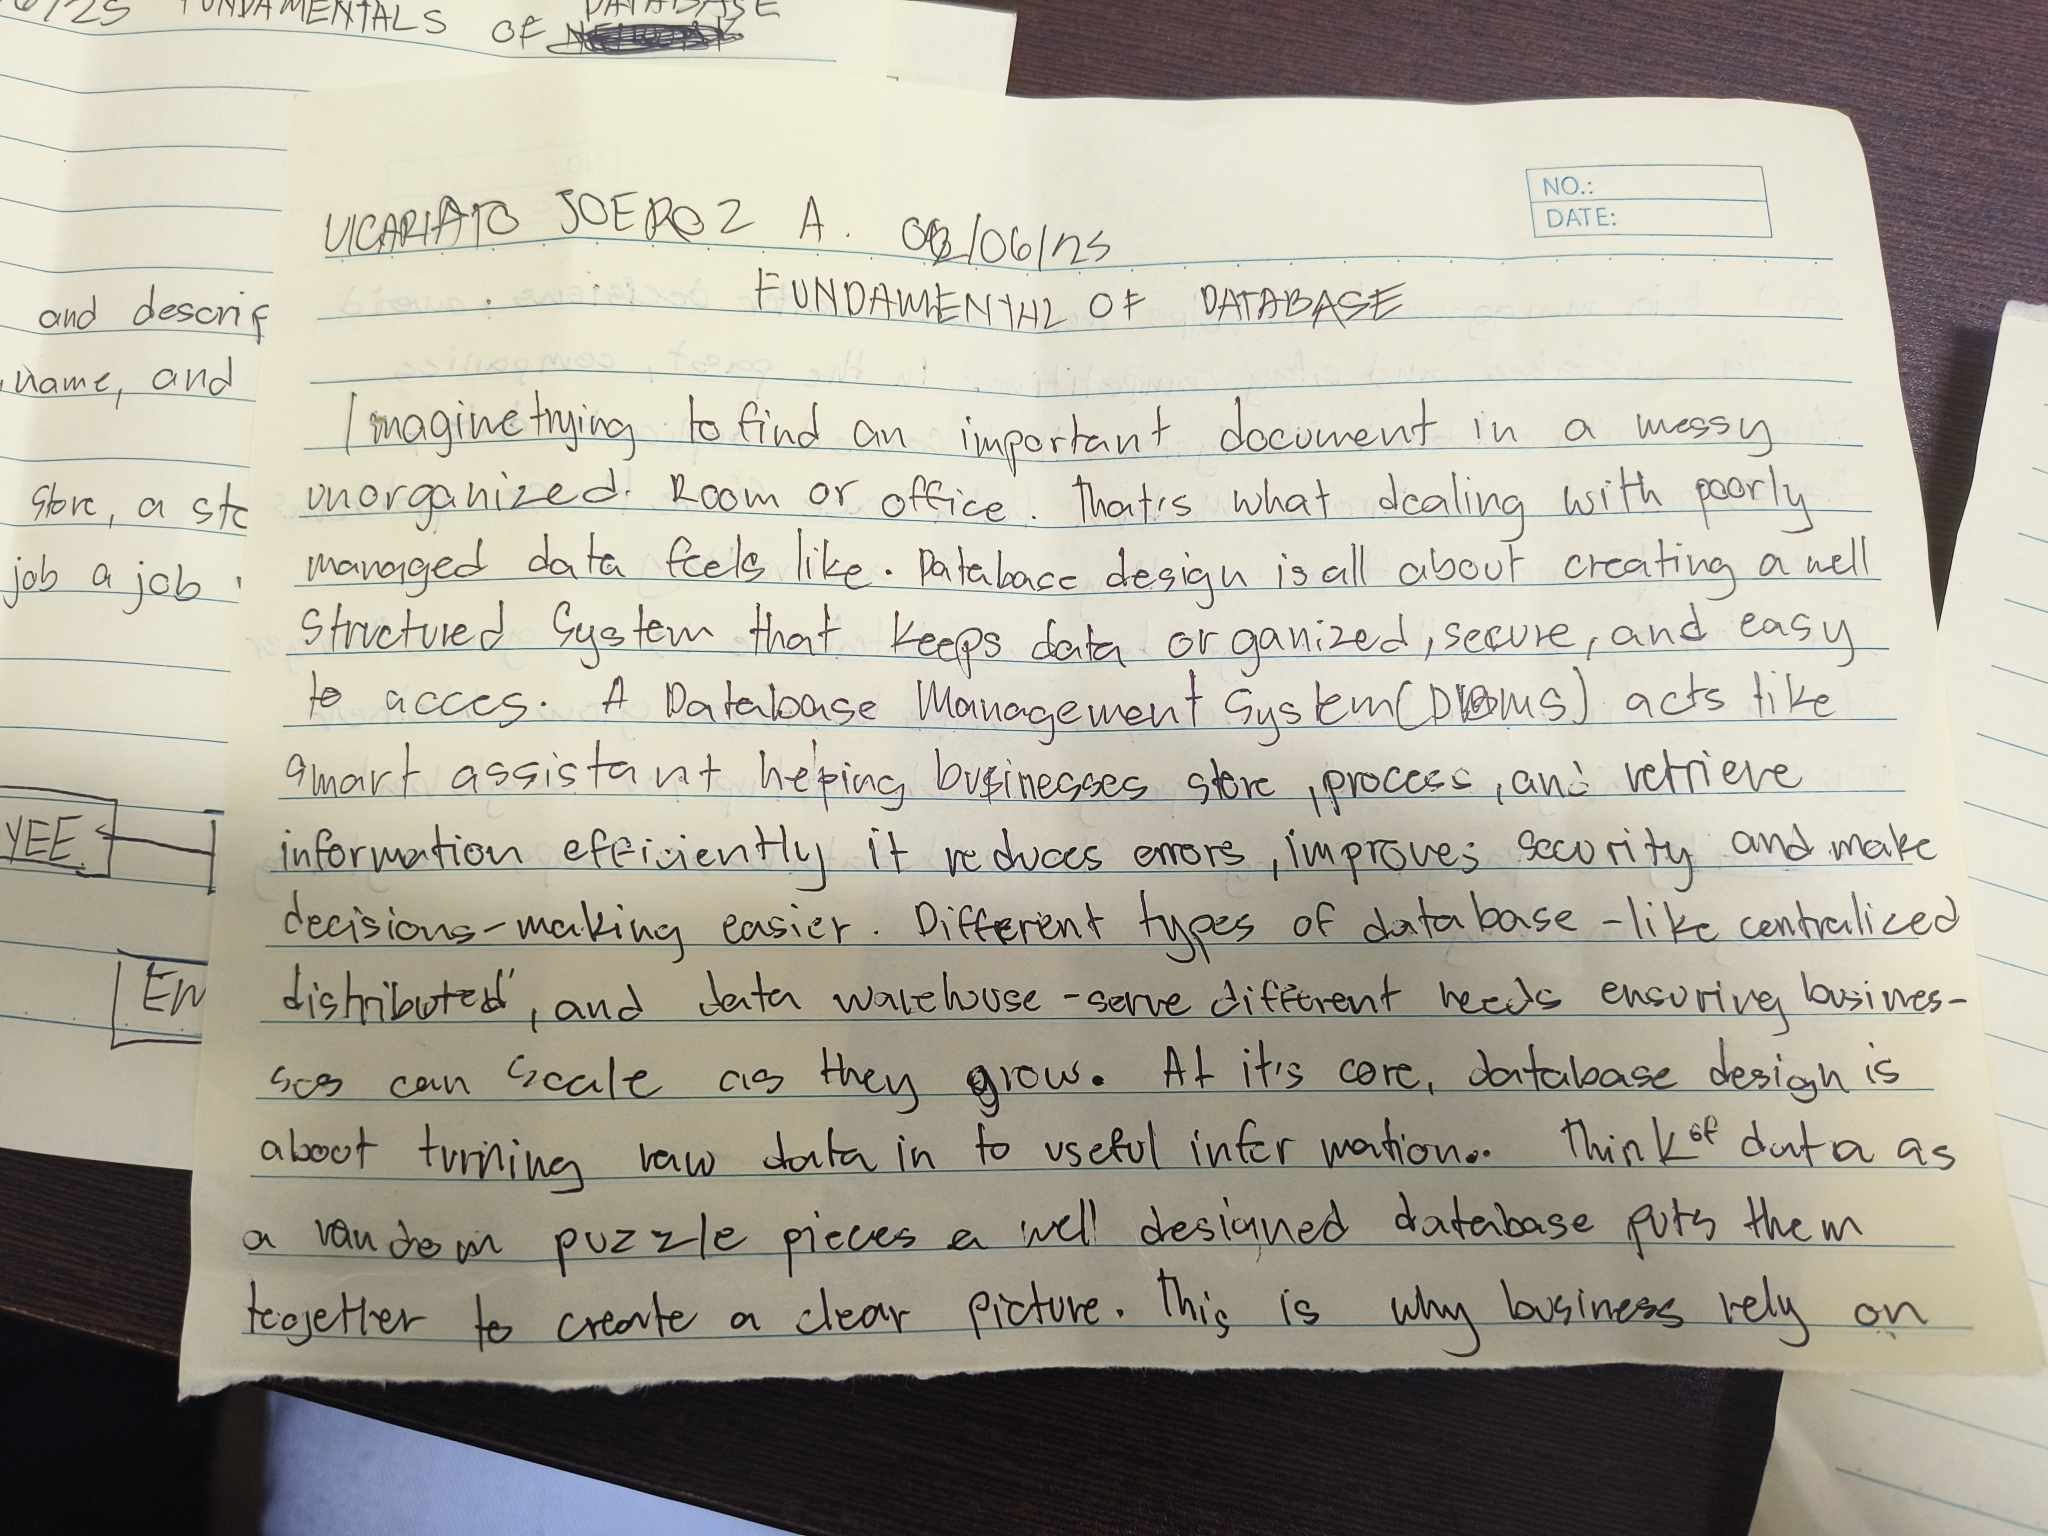 FUNDAMENTALS OF DATABASE
and descrip
name, and
store, a sto
job a job
YEE
EM
NO.:
DATE:
VICARIATO JOEROZ A. 02/06/25
FUNDAMENTAL OF DATABASE
Imagine trying to find an important document in a messy
unorganized. Room or office. That's what dealing with poorly
managed data feels like. Database design is all about creating a well
structured system that keeps data organized, secure, and easy
to acces. A Database Management System (DBMS) acts like
smart assistant helping businesses store, process, and retrieve
information efficiently it reduces errors, improves security and make
decisions-making easier. Different types of database - like centraliced
distributed, and data warehouse - serve different needs ensuring busines-
ses can scale as they grow. At it's core, database design is
about turning raw data in to useful information.. Think of data as
a random puzzle pieces a well designed database puts them
together to create a clear picture. This is why business rely on